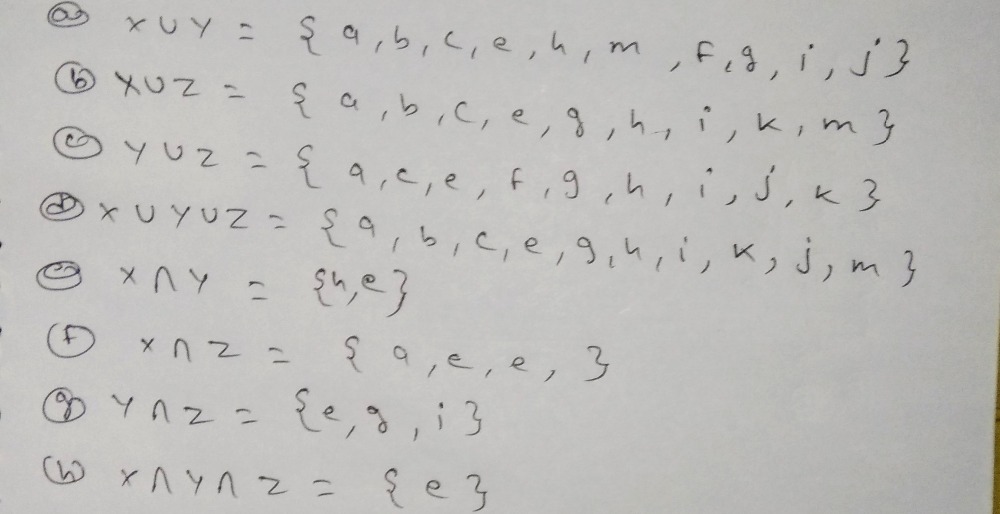 (a) X ∪ Y = { a, b, c, e, h, m, f, g, i, j }
(b) X ∪ Z = { a, b, c, e, g, h, i, k, m }
(c) Y ∪ Z = { a, c, e, f, g, h, i, j, k }
(d) X ∪ Y ∪ Z = { a, b, c, e, g, h, i, k, j, m }
(e) X ∩ Y = {h, e}
(f) X ∩ Z = { a, e, e, }
(g) Y ∩ Z = {e, g, i}
(h) X ∩ Y ∩ Z = { e }